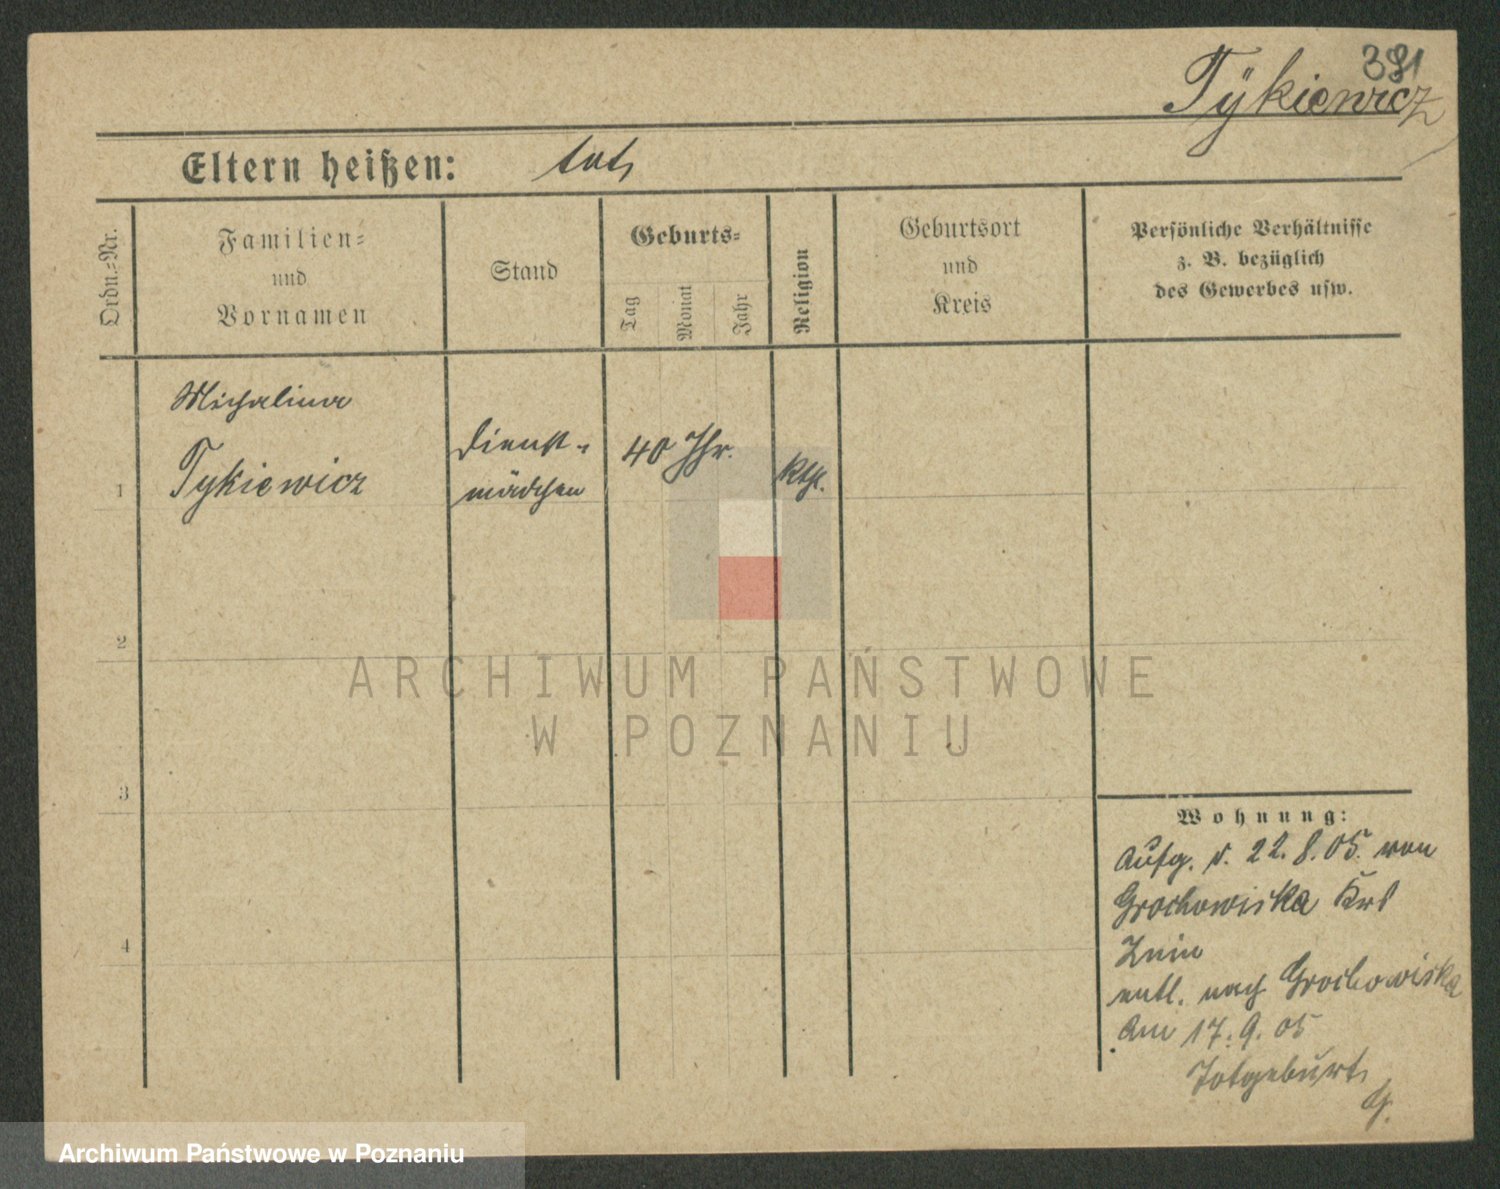 391
Tÿkiewicz
Eltern heißen: tot
Ordn.-Nr.
Familien-
und
Vornamen
Stand
Geburts-
Tag
Monat
Jahr
Religion
Geburtsort
und
Kreis
Persönliche Verhältnisse
z. B. bezüglich
des Gewerbes usw.
Michalina
Tykiewicz
Dienst-
mädchen
40 Jhr.
kth.
1
2
3
4
Wohnung:
Aufg. d. 22.8.05. von
Grochowiska Krs
Znin
entl. nach Grochowiska
Am 17.9.05
Totgeburt
G.
ARCHIWUM PAŃSTWOWE
W POZNANIU
Archiwum Państwowe w Poznaniu